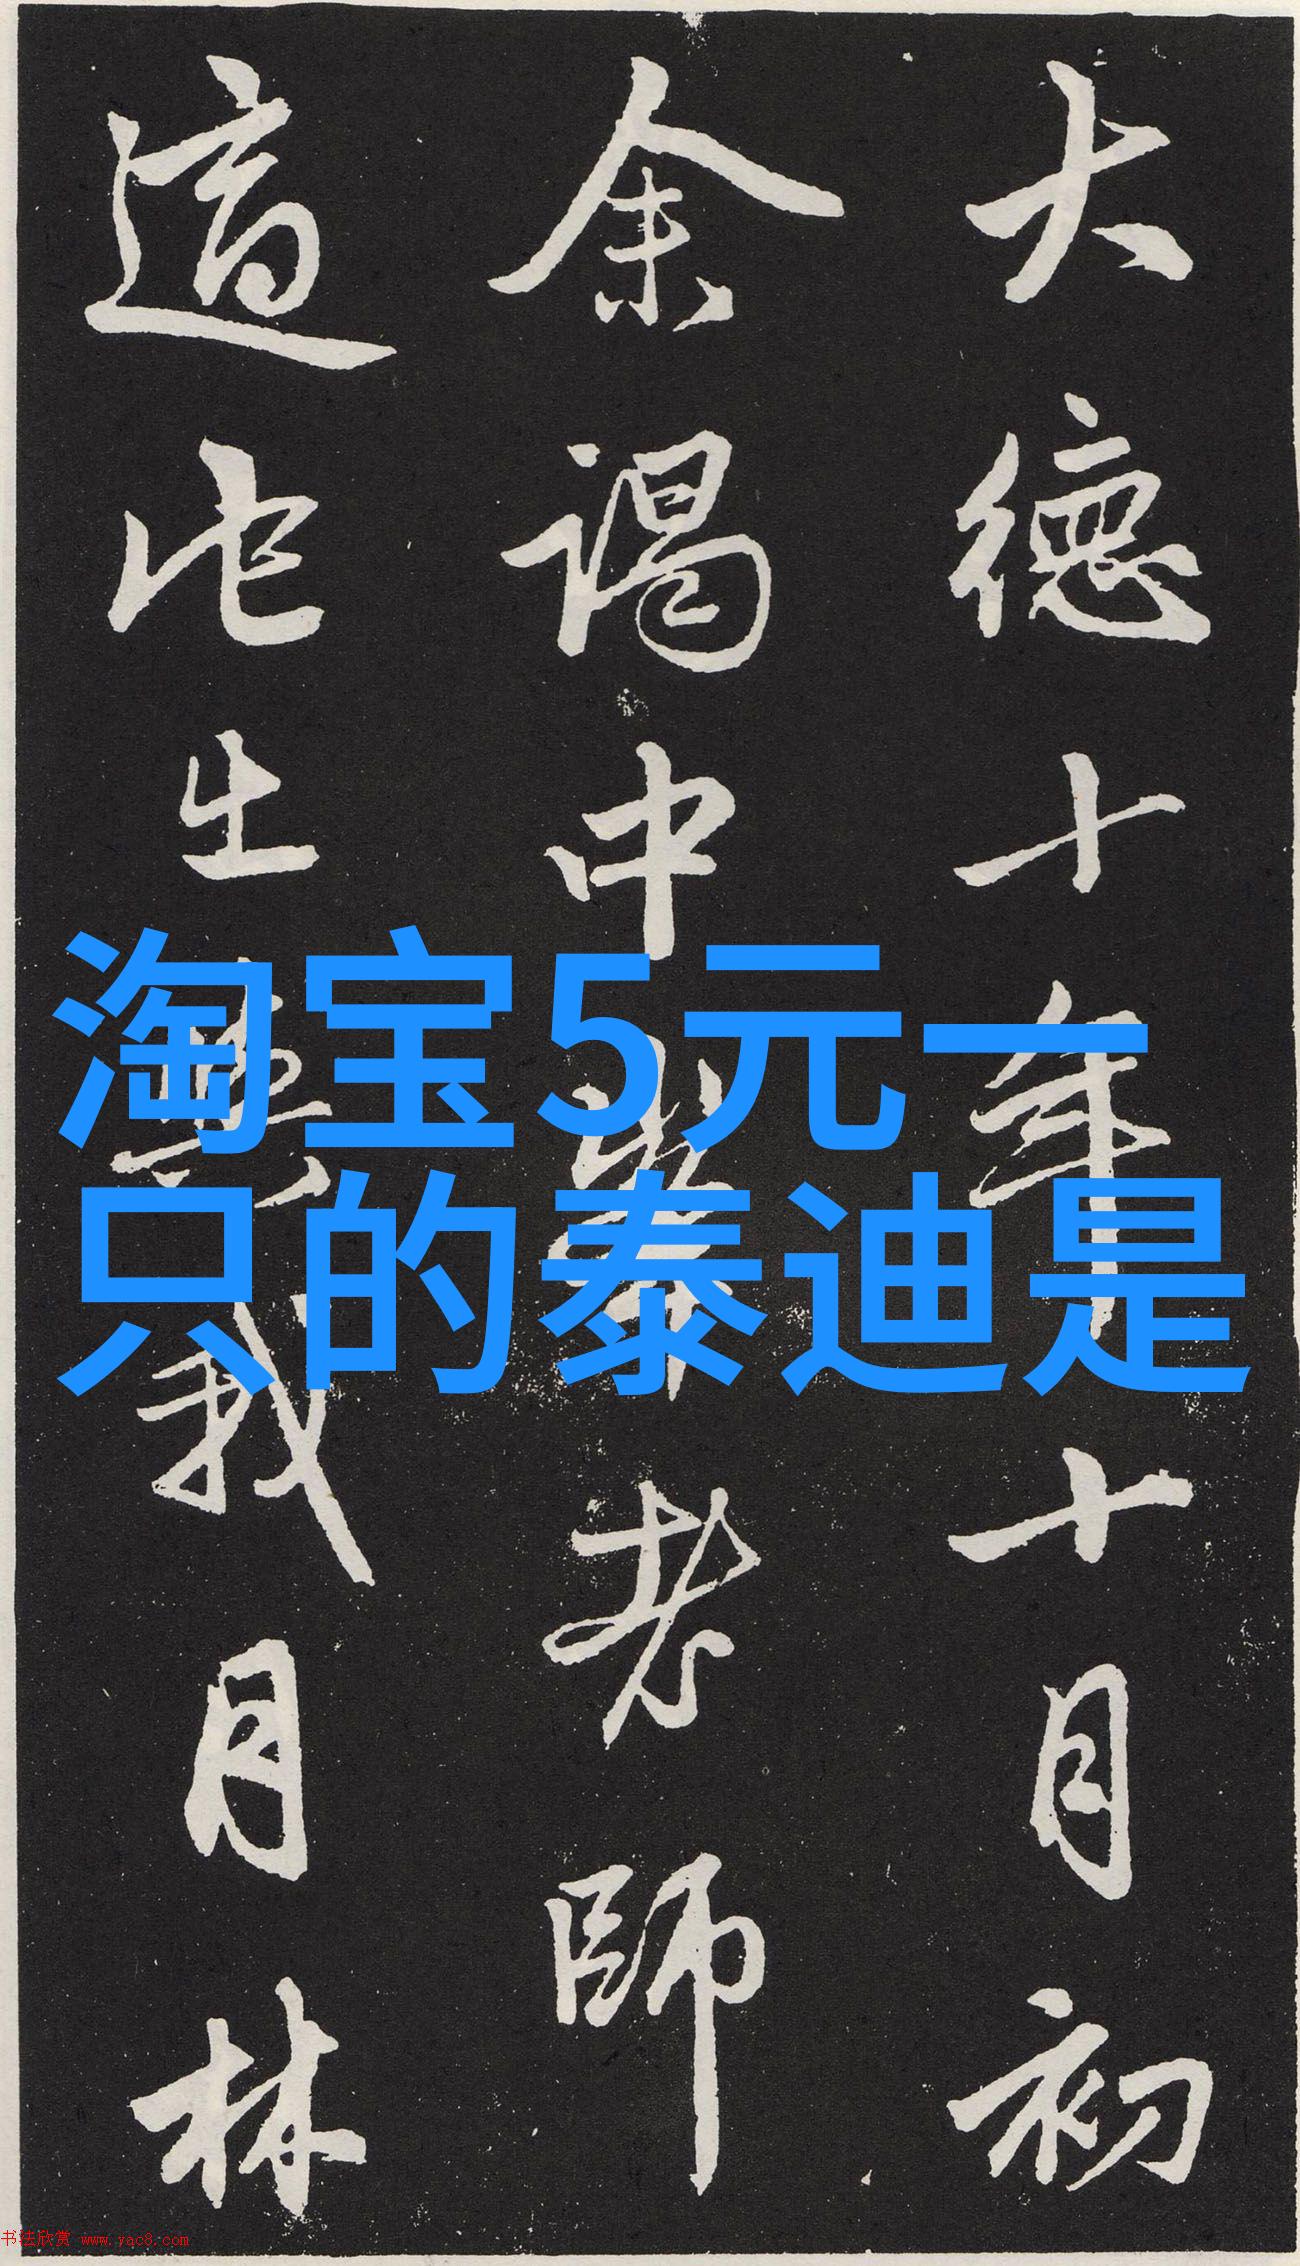 大德十年十月初
余謁中峯老師
適此我月林
淘宝5元一
只的泰迪是
书法欣赏 www.yac8.com